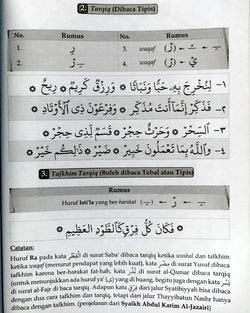 2. Tarqiq (Dibaca Tipis)
No. Rumus No. Rumus
1. رِ 3. waqaf
2. 4. waqaf
١- لِنُخْرِجَ بِهِ، حَبًّا وَنَبَاتًا * وَرِزْقٌ كَرِيمٌ * رِيحٌ *
٢- فَذَكِّرْ إِنَّمَا أَنتَ مُذَكِّرٌ * وَفِرْعَوْنَ ذِي الْأَوْتَادِ *
٣- السِّحْرَ * وَحَرْثٌ حِجْرٌ * قَسَمٌ لِّذِي حِجْرٍ *
٤- وَاللَّهُ بِمَا تَعْمَلُونَ خَبِيرٌ * ضَيْرَ * ذَٰلِكُمْ خَيْرٌ *
3. Tafkhim Tarqiq (Boleh dibaca Tebal atau Tipis)
Rumus
Huruf Isti'la yang ber-harakat
فَكَانَ كُلُّ فِرْقٍ كَالطَّوْدِ الْعَظِيمِ *
Catatan:
Huruf Ra pada kata القطر di surat Saba' dibaca tarqiq ketika washal dan tafkhim
ketika waqaf (menurut pendapat yang lebih kuat), kata مصر di surat Yusuf dibaca
tafkhim karena ber-harakat fat-hah, kata ونذر di surat al-Qamar dibaca tarqiq
(untuk menunjukkan ada huruf ya' (ي) yang di buang, begitu juga dengan kata يسر
di surat al-Fajr di baca tarqiq. Adapun kata فرق dari jalur Syatibiyyah bisa dibaca
dengan dua cara tafkhim dan tarqiq, tetapi dari jalur Thayyibatun Nashr hanya
dibaca dengan tafkhim. (penjelasan dari Syaikh Abdul Karim Al-Jazairi)